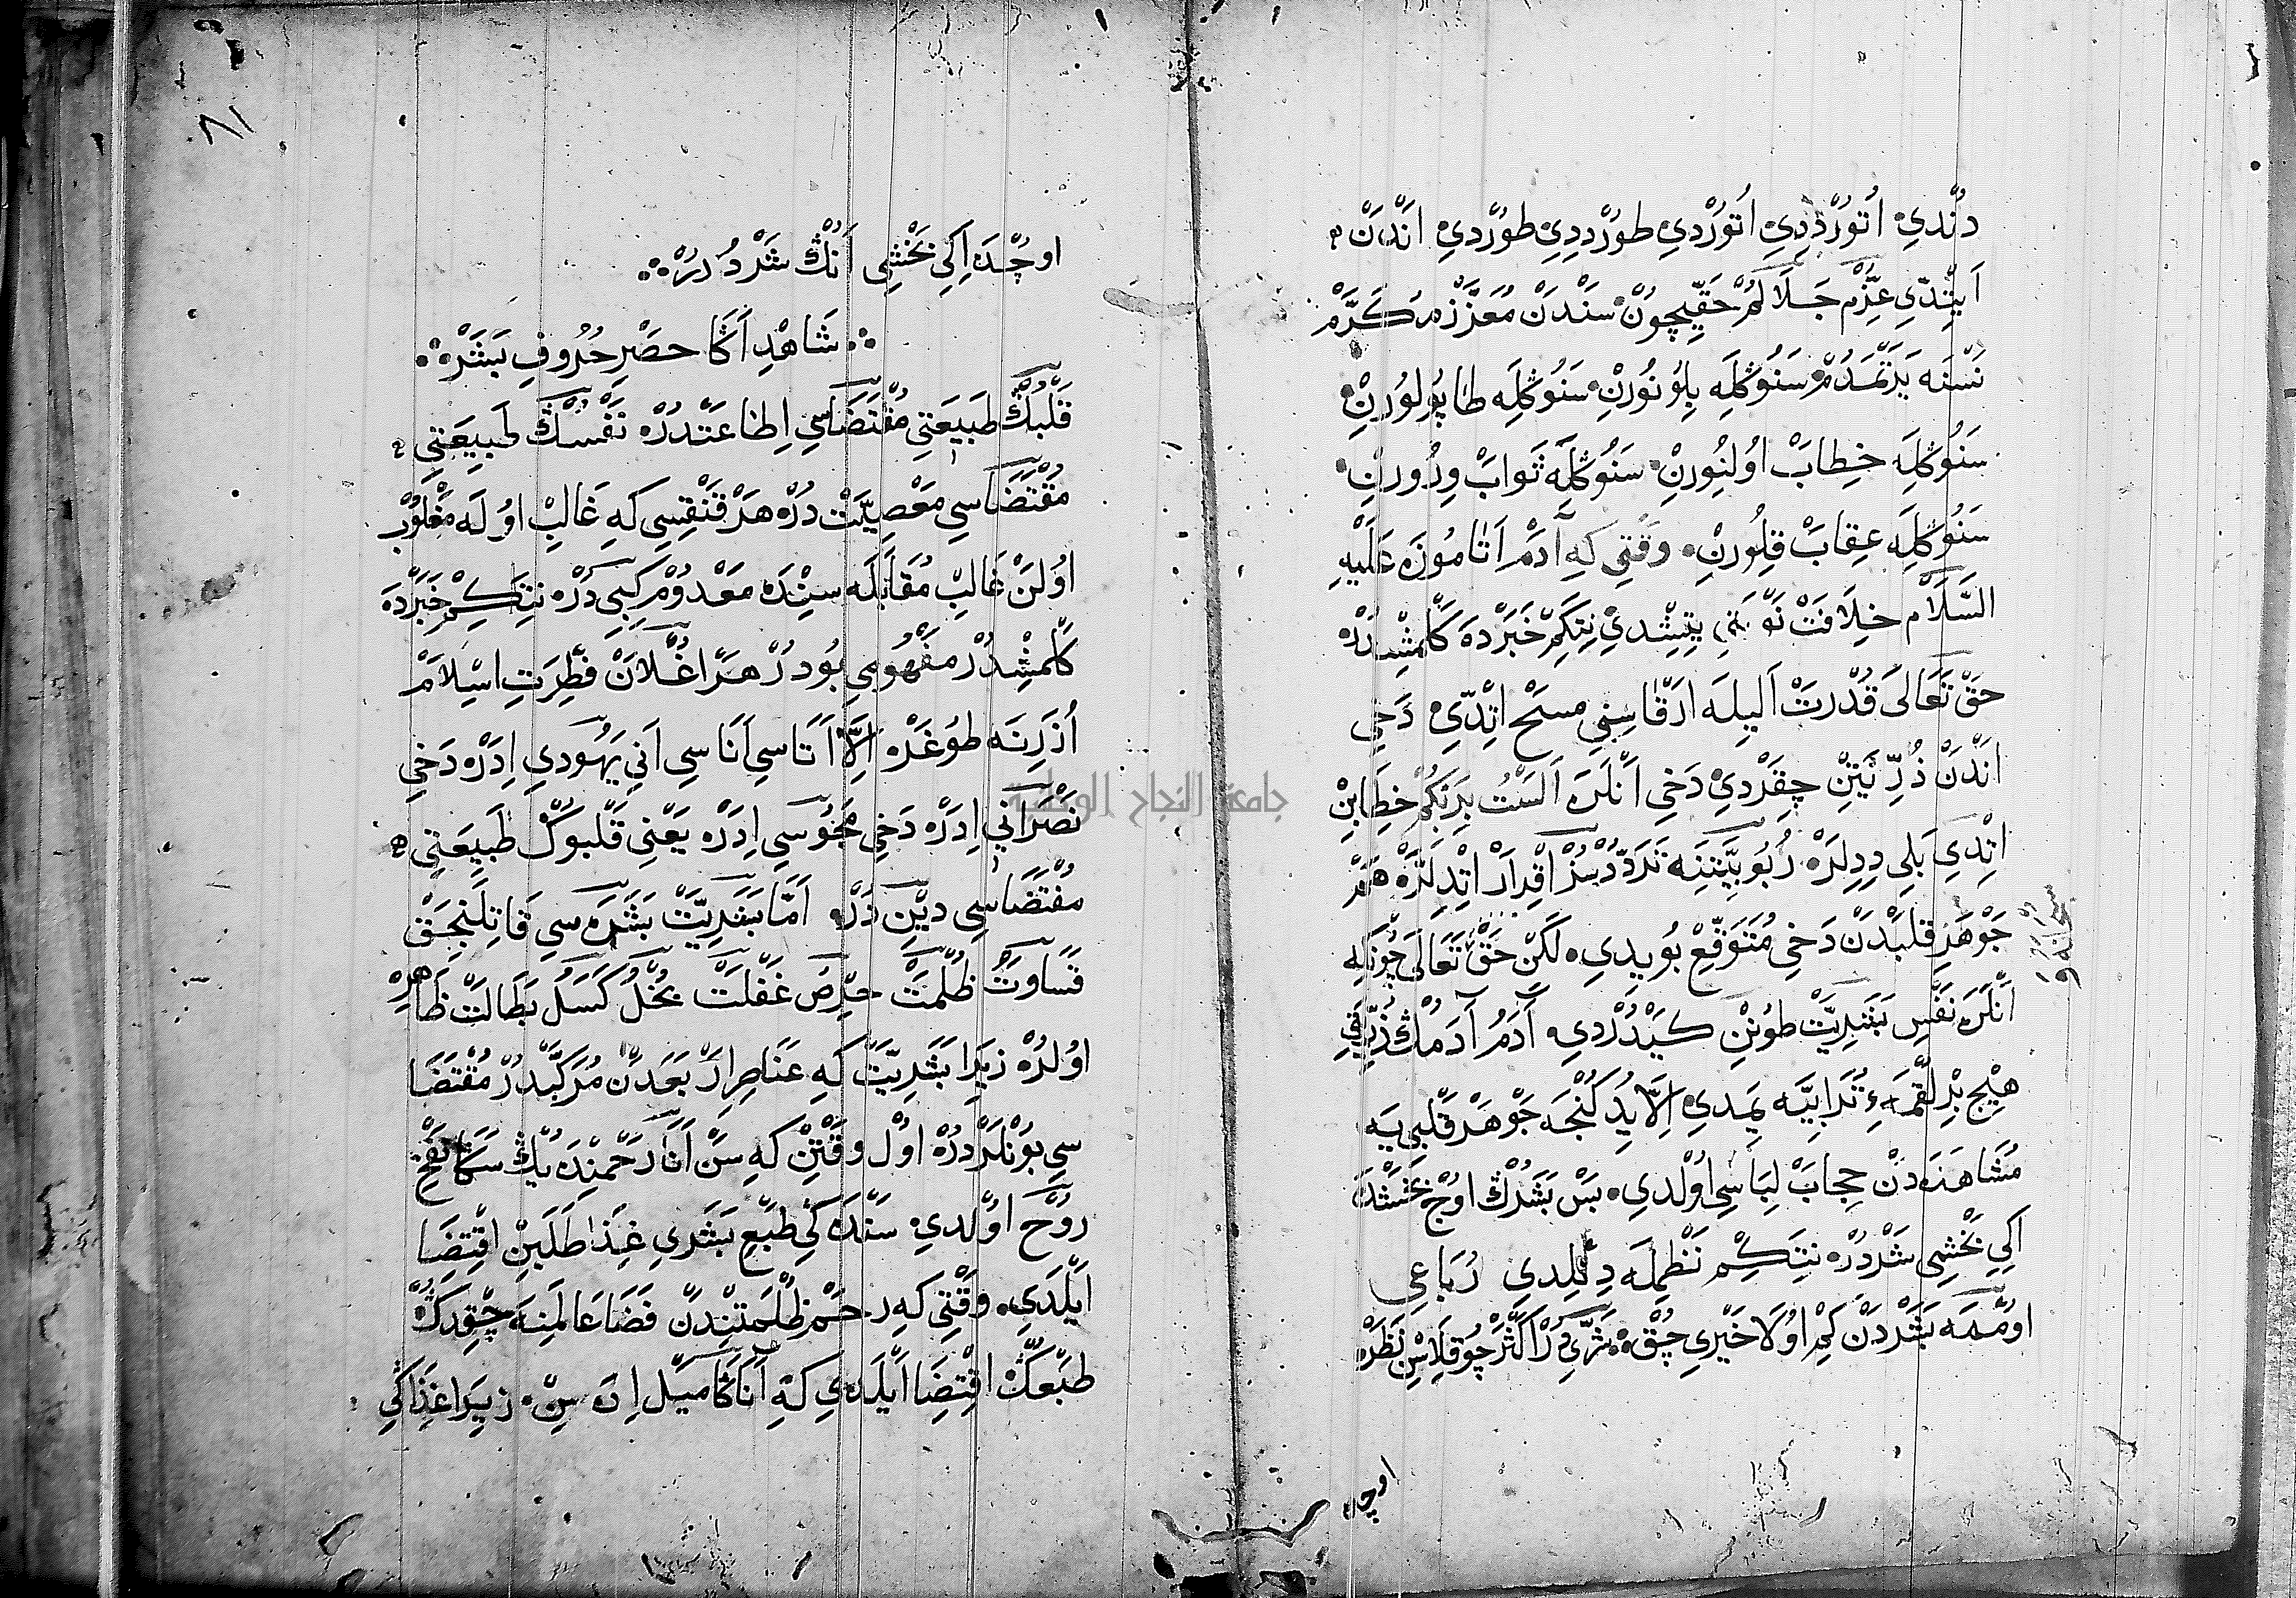 دُنْدِي اُتُورْدِدِي اُتُورْدِي طُورْدِدِي طُورْدِي اَنْدَنْ
اَيِتْدِي عِزِّمْ جَلَالُمْ حَقِّيچُونْ سَنْدَنْ مُعَزَّزْ مُكَرَّمْ
نَسْنَه يَرَتْمَدُمْ سَنُوڭلَه بِلُونُورِنْ سَنُوڭلَه طَاپُلُورِنْ
سَنُوڭلَه خِطَابْ اُولِنُورِنْ سَنُوڭلَه ثَوَابْ وِرُورِنْ
سَنُوڭلَه عِقَابْ قِلُورِنْ وَقْتِي كِه آدَمْ اَتَامُوزَه عَلَيْهِ
السَّلَامْ خِلَافَتْ يِتِشْدِي نِتَكِمْ خَبَرْدَه كَلْمِشْدُرْ
حَقْ تَعَالَى قُدْرَتْ اَلِيلَه اَرْقَاسِنِي مَسْحْ اِتْدِي دَخِي
اَنْدَنْ ذُرِّيَّتِنْ چِقَرْدِي دَخِي اَنْلَرَه اَلَسْتُ بِرَبِّكُمْ خِطَابِنْ
اِتْدِي بَلِي دِدِلَرْ رُبُوبِيَّتِنَه تَرَدُّدْسُزْ اِقْرَارْ اِتْدِلَرْ هَمْ
جَوْهَرِ قَلْبْدَنْ دَخِي مُتَوَقِّعْ بُويِدِي لَكِنْ حَقْ تَعَالَى چُونْكِه
اَنْلَرَه نَفْسِ بَشَرِيَّتْ طُونِنْ كَيْدُرْدِي آدَمُ آدَمُڭ ذُرِّيَّتِي
هِيچْ بِرْ لُقْمَهءِ تُرَابِيَّه يِمَدِي اِلَّا يِدُكُنْجَه جَوْهَرِ قَلْبِيَه
مُشَاهَدَه دَنْ حِجَابْ لِبَاسِي اُولْدِي بَسْ بَشَرُڭ اُوچْ بَخْشِنْدَه
اِكِي بَخْشِي شَرْدُرْ نِتَكِمْ نَظْمِلَه دِنِلْدِي رُبَاعِي
اُومْمَه بَشَرْدَنْ كِمْ اُولَا خَيْرِي چُقْ شَرِّيدُرْ اَكْثَرْ چُو قِلَاسِنْ نَظَرْ
اوچده
٨١
اُوچْدَه اِكِي بَخْشِي اَنُڭ شَرْدُرُرْ
شَاهِدْ اَڭَا حَصْرِ حُرُوفِ بَشَرْ
قَلْبُڭ طَبِيعَتِي مُقْتَضَاسِي اِطَاعَتْدُرْ نَفْسُڭ طَبِيعَتِي
مُقْتَضَاسِي مَعْصِيَتْ دُرْ هَرْ قَنْقِسِي كِه غَالِبْ اُولَه مَغْلُوبْ
اُولَنْ غَالِبْ مُقَابَلَه سِنْدَه مَعْدُومْ كِبِي دُرْ نِتَكِمْ خَبَرْدَه
كَلْمِشْدُرْ مَفْهُومِي بُودُرْ هَرْ اُغْلَانْ فِطْرَتِ اِسْلَامْ
اُزَرِنَه طُوغَرْ اِلَّا اَتَاسِي اَنَاسِي اَنِي يَهُودِي اِدَرْ دَخِي
نَصْرَانِي اِدَرْ دَخِي مَجُوسِي اِدَرْ يَعْنِي قَلْبُوڭ طَبِيعَتِي
مُقْتَضَاسِي دِينْ دُرْ اَمَّا بَشَرِيَّتْ بَشَرَه سِي قَاتِلَنِجَقْ
قَسَاوَتْ ظُلْمَتْ حِرْصْ غَفْلَتْ بُخْلْ كَسَلْ بَطَالَتْ ظَاهِرْ
اُولُرْ زِيرَا بَشَرِيَّتْ كِه عَنَاصِرِ اَرْبَعَدَنْ مُرَكَّبْدُرْ مُقْتَضَا
سِي بُونْلَرْدُرْ اُولْ وَقْتِنْ كِه سَنْ اَنَا رَحْمِنْدَه يِڭ سَڭَا نَفْخِ
رُوحْ اُولْدِي سَنْدَه كِي طَبْعِ بَشَرِي غِذَا طَلَبِنْ اِقْتِضَا
اَيْلَدِي وَقْتِي كِه رَحْمْ ظُلْمَتِنْدَنْ فَضَا عَالَمِنَه چِقْدِڭ
طَبْعُڭ اِقْتِضَا اَيْلَدِي كِه اَنَاڭَا مَيْل اِدَه سِنْ زِيرَا غِذَاڭِي